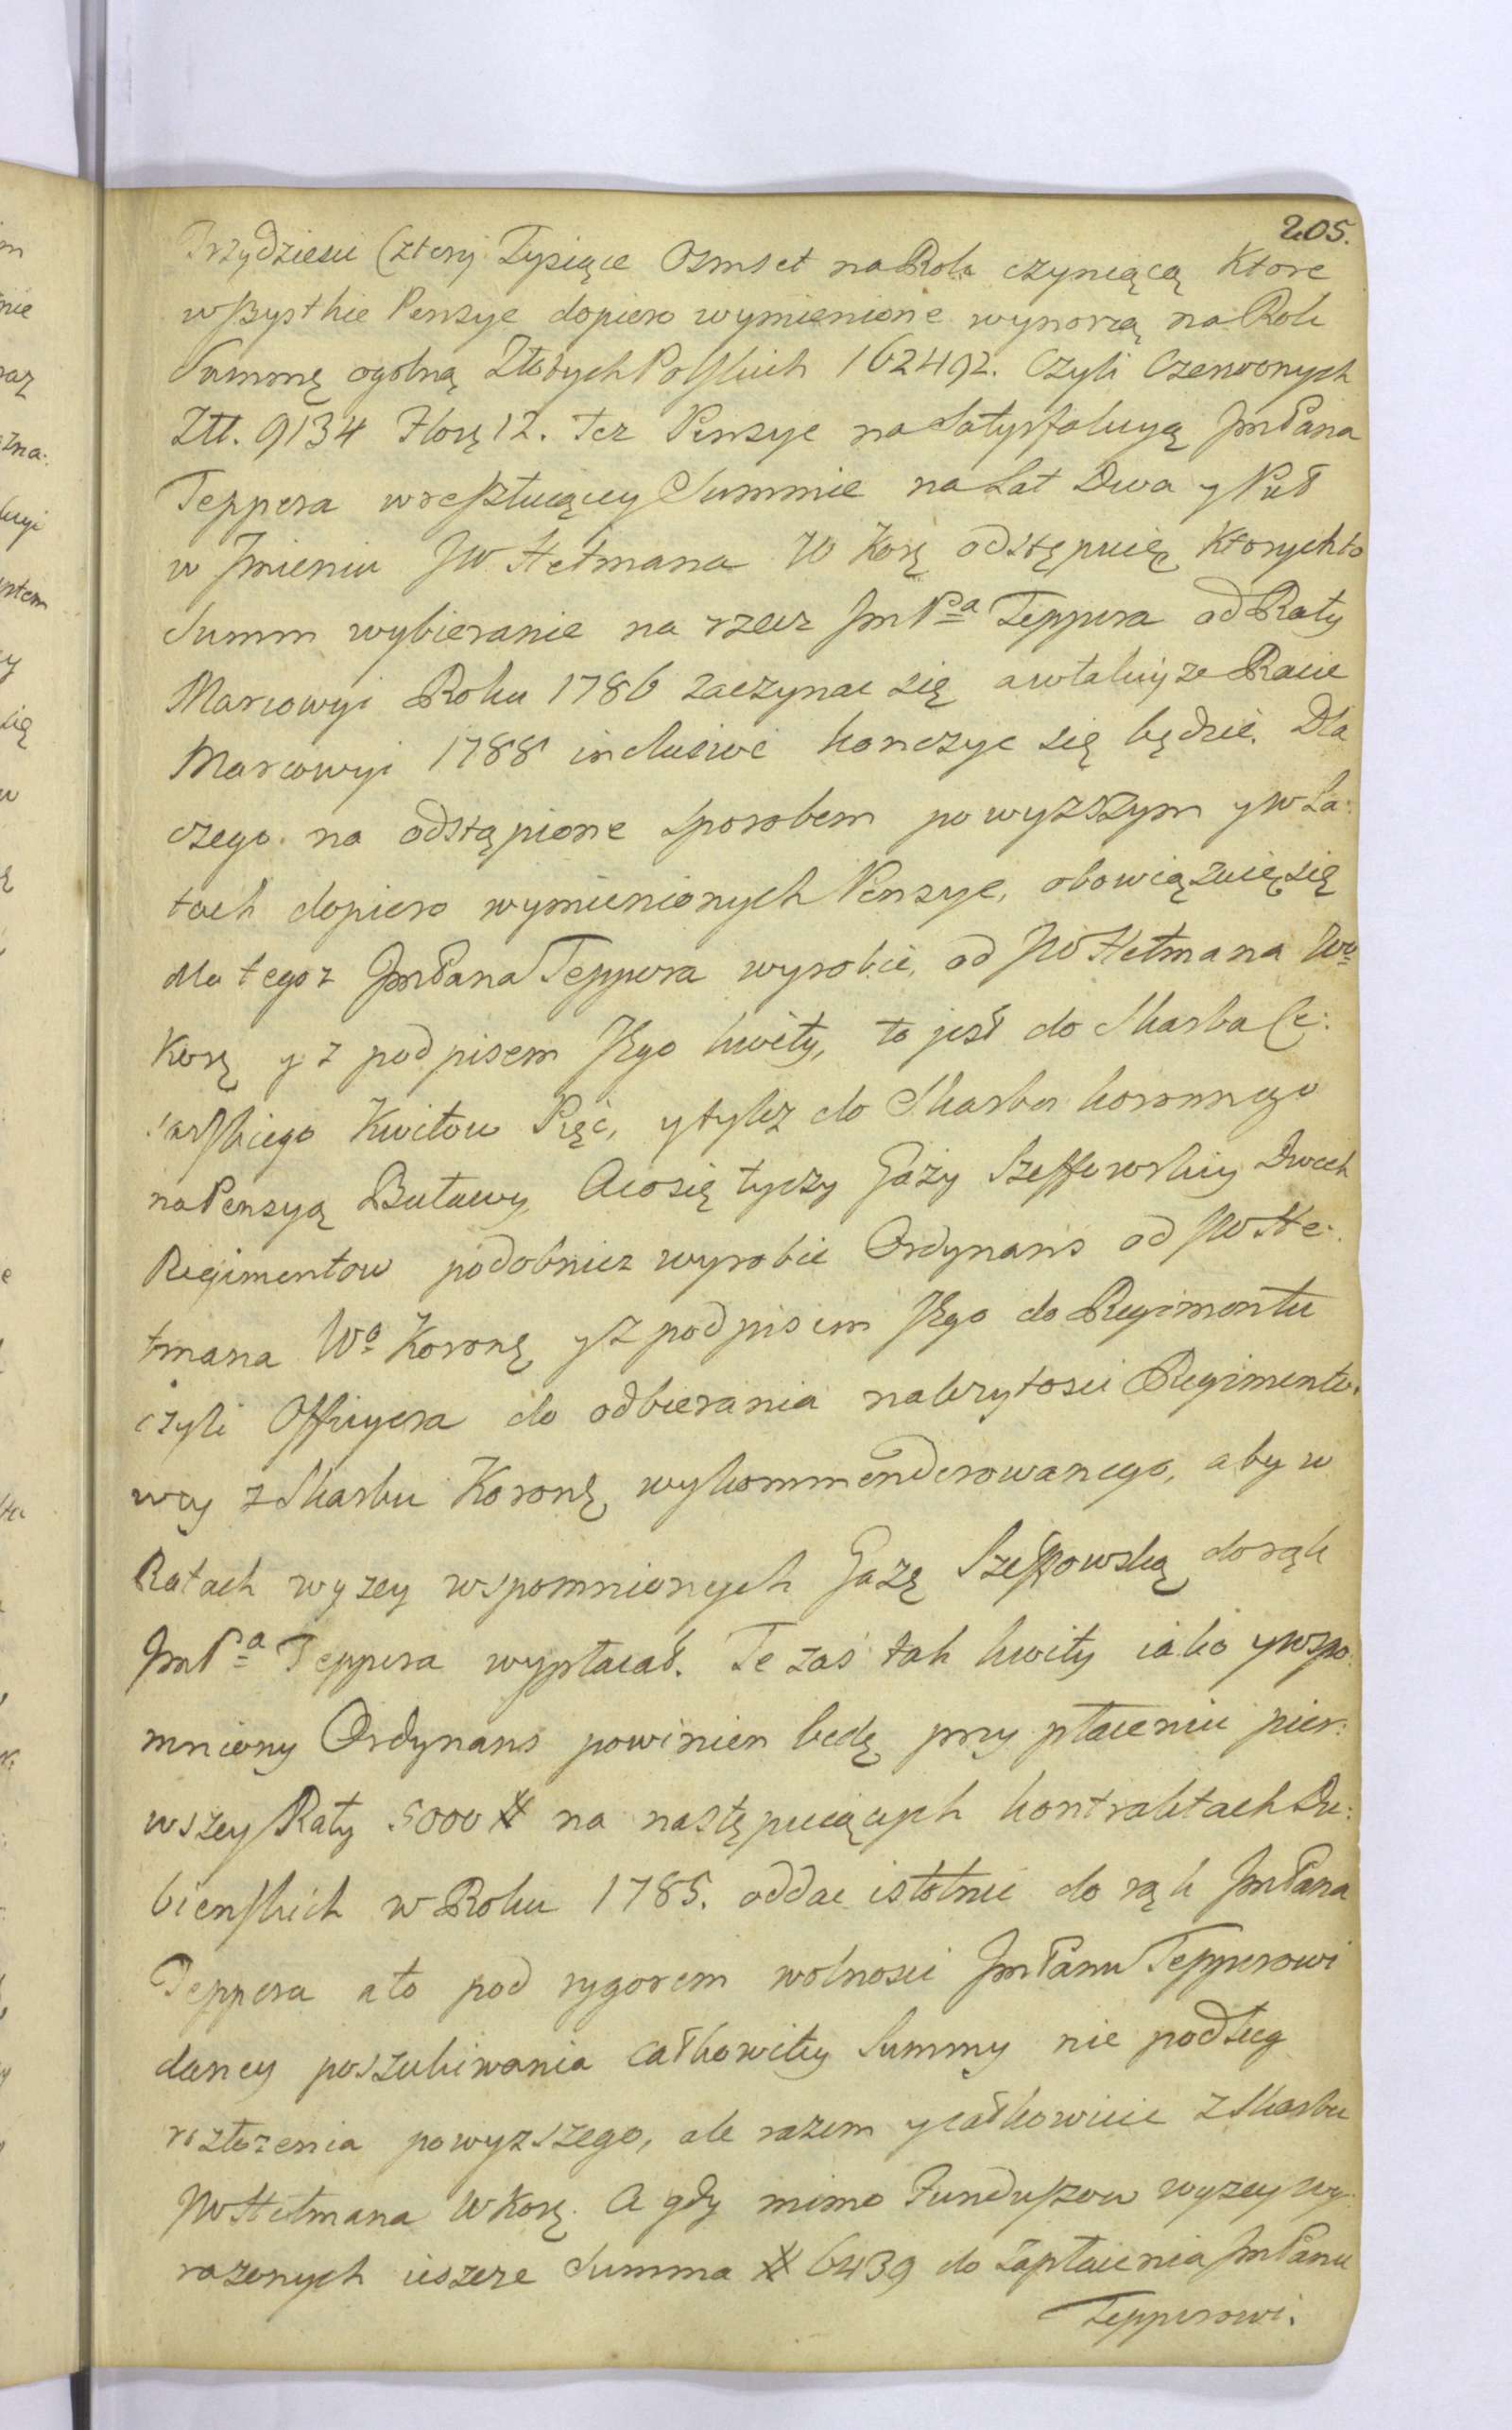 205.
Trzydziesci Cztery Tysiące Osmset na Rok czyniącą Ktore
wszystkie Pensye dopiero wymienione wynoszą na Rok
Summę ogolną Złotych Polskich 162492. Czyli Czerwonych
Ztt. 9134 Złotę 12. Tez Pensye na Satysfakcyą JmPana
Teppera w resztuiącey Summie na Lat Dwa y Puł
w Jmieniu JW Hetmana W Korę odstępuię Ktorychto
Summ wybieranie na rzecz JmPa Teppera od Raty
Marcowyi Roku 1786 zaczynac się a w takiyze Racie
Marcowyi 1788 inclusive konczyc się będzie. Dla
czego na odstąpione sposobem powyzszym y w La:
tach dopiero wymienionych Pensye, obowiązuię się
dla tegoz JmPana Teppera wyrobic, od JW Hetmana Wo
Korę y z podpisem JEgo kwity, to jest do Skarbu Ce:
sarskiego Kwitow Pięc, y tylez do Skarbu koronnego
na Pensyą Buławy, A co się tyczy Gazy Szeffowskiy Dwoch
Regimentow podobniez wyrobic Ordynans od JW He:
tmana Wo Koronę y z podpisem JEgo do Regimentu
czyli Officyera do odbierania nalezytosci Regimento:
wey z Skarbu Koronę wykommenderowanego, aby w
Ratach wyzey wspomnionych Gazę Szeffowską do rąk
JmPa Teppera wypłacał. Te zas tak kwity iako y wspo:
mniony Ordynans powinien będę przy płaceniu pier:
wszey Raty 5000 # na następuiących kontraktach Du:
bienskich w Roku 1785. oddac istotnie do rąk JmPana
Teppera a to pod rygorem wolnosci JmPanu Tepperowi
daney poszukiwania całkowitey Summy nie podług
rozłozenia powyzszego, ale razem y całkowicie z Skarbu
JW Hetmana W Korę. A gdy mimo Funduszow wyzey wy:
razonych ieszcze Summa # 6439 do zapłacenia JmPanu
Tepperowi.